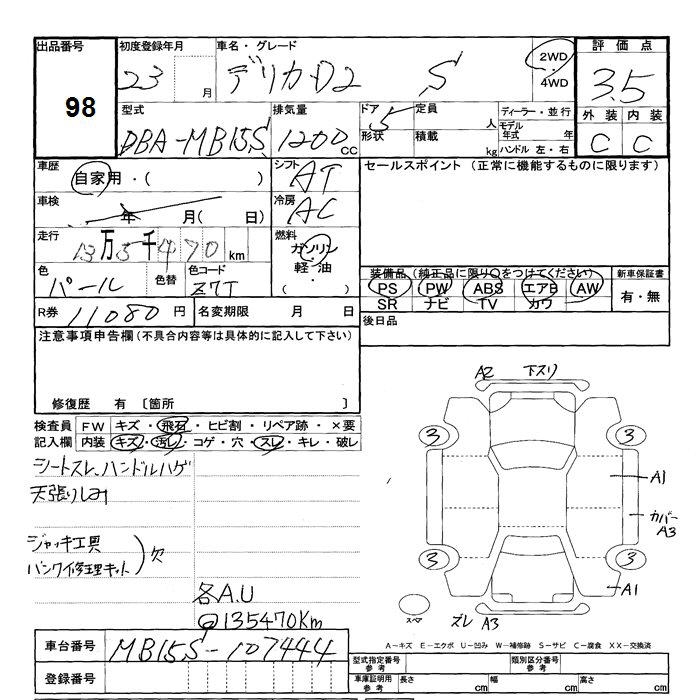 出品番号
98
初度登録年月
23 月
車名・グレード
デリカD2 S
2WD
・
4WD
評価点
3.5
外装 内装
C C
型式
DBA-MB15S
排気量
1200 cc
ドア 5
形状
定員 人
積載 kg
ディーラー・並行
モデル年式 年
ハンドル 左・右
車歴
自家用・( )
シフト
AT
セールスポイント (正常に機能するものに限ります)
車検
年 月( 日)
冷房
AC
走行
13万5千470km
燃料
ガソリン
軽・油
( ・ )
色
パール
色替
色コード
Z7T
装備品 (純正品に限り○をつけてください)
PS PW ABS エアB AW
SR ナビ TV カワ
新車保証書
有・無
R券 11080 円
名変期限 月 日
後日品
注意事項申告欄(不具合内容等は具体的に記入して下さい)
修復歴 有 〔箇所 〕
検査員記入欄
FW キズ・飛石・ヒビ割・リペア跡・×要
内装 キズ・汚レ・コゲ・穴・スレ・キレ・破レ
シートスレ、ハンドルハゲ
天張りしみ
ジャッキ工具
パンク修理キット
欠
各A.U
@135470Km
A2 下スリ
3 3
A1
カバー
A3
3 3
A1
スペア
ズレ A3
A-キズ E-エクボ U-凹み W-補修跡 S-サビ C-腐食 XX-交換済
車台番号 MB15S-107444
登録番号
型式指定番号
参考
類別区分番号
参考
車庫証明用
参考
長さ cm 幅 cm 高さ cm